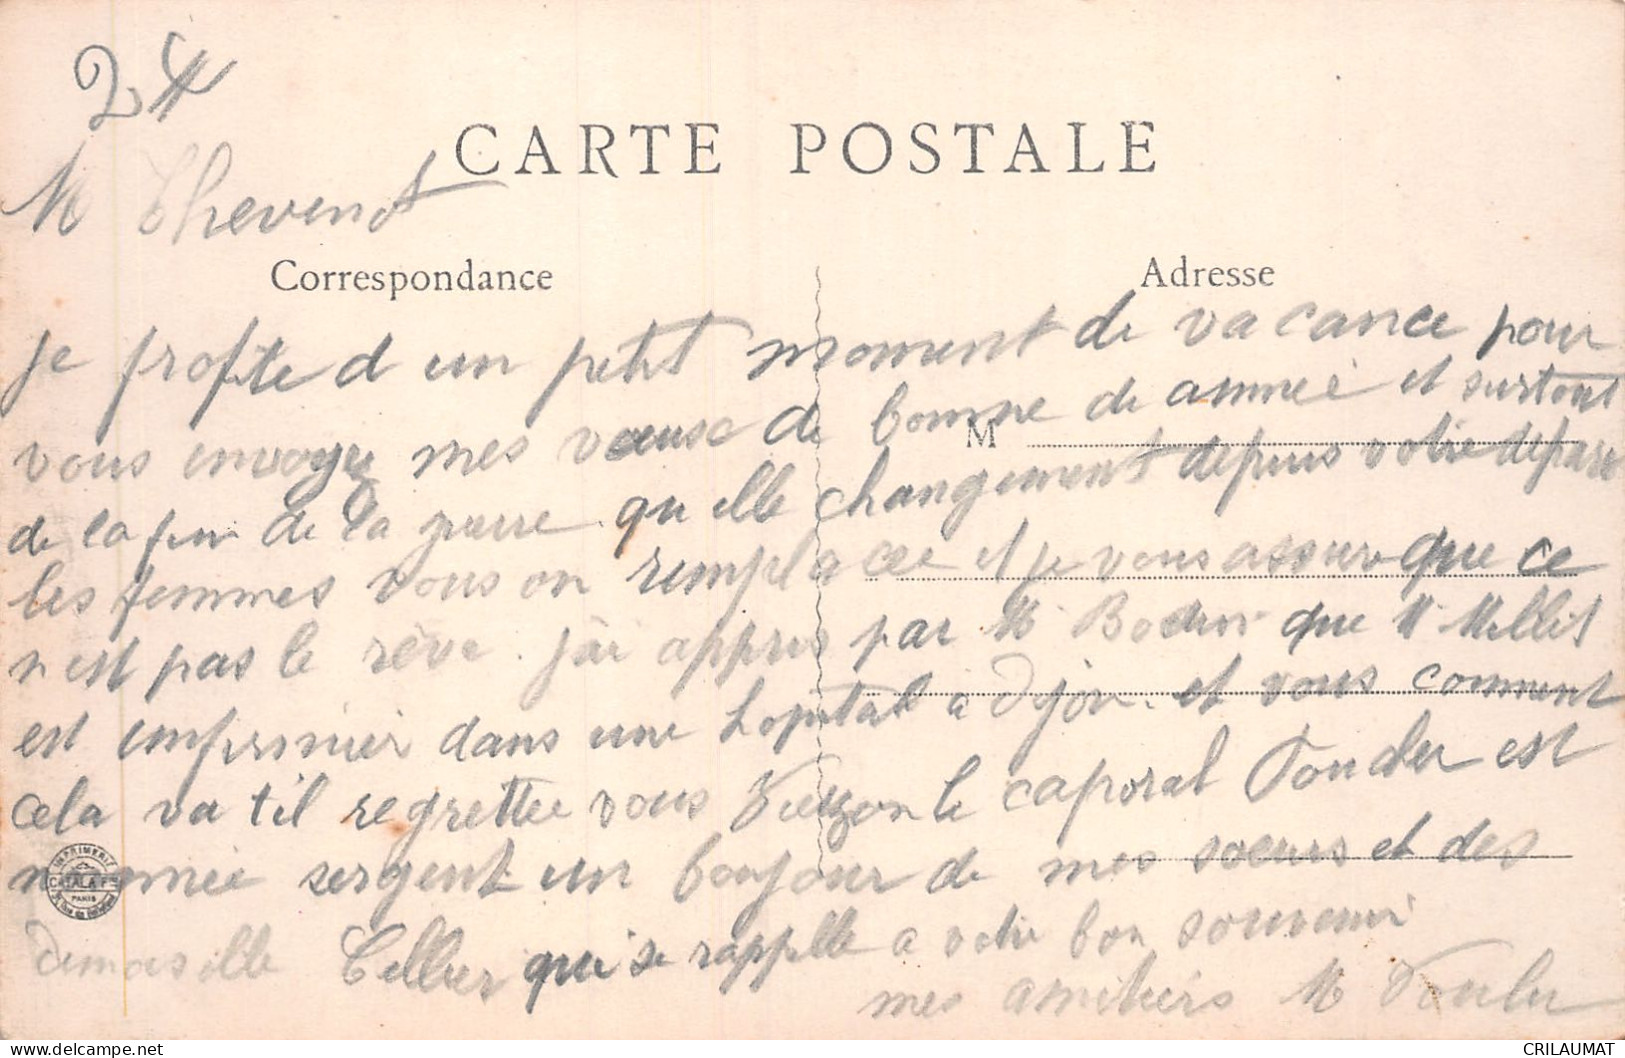 24
CARTE POSTALE
M Thevenot
Correspondance
Adresse
je profite d un petit moment de vacance pour
vous envoyer mes vœuse de bonne de annee et surtout
M
de la fin de la guerre qu elle changement depuis votre depart
les femmes vous on remplacee et je vous assure que ce
n est pas le rêve. j'ai appris par M Bodin que M Millet
est imprimier dans une hopital a Dijon. et vous comment
cela va til regrettee vous Vierzon le caporal est
nommee sergent un bonjour de mes soeurs et des
demoiselle Cellier qui se rappelle a votre bon souvenir
mes amitiers M
IMPRIMERIE
CATALA Fres
PARIS
CRILAUMAT